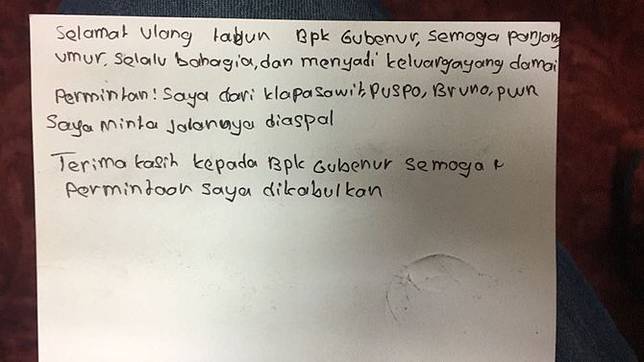 Selamat Ulang tahun Bpk Gubenur, semoga panjang
umur. selalu bahagia, dan menyadi keluargayang damai
Permintan! Saya dari klapasawit, Puspo, Bruno, pwr
Saya minta jalannya diaspal
Terima kasih kepada Bpk Gubenur semoga
Permintaan saya dikabulkan